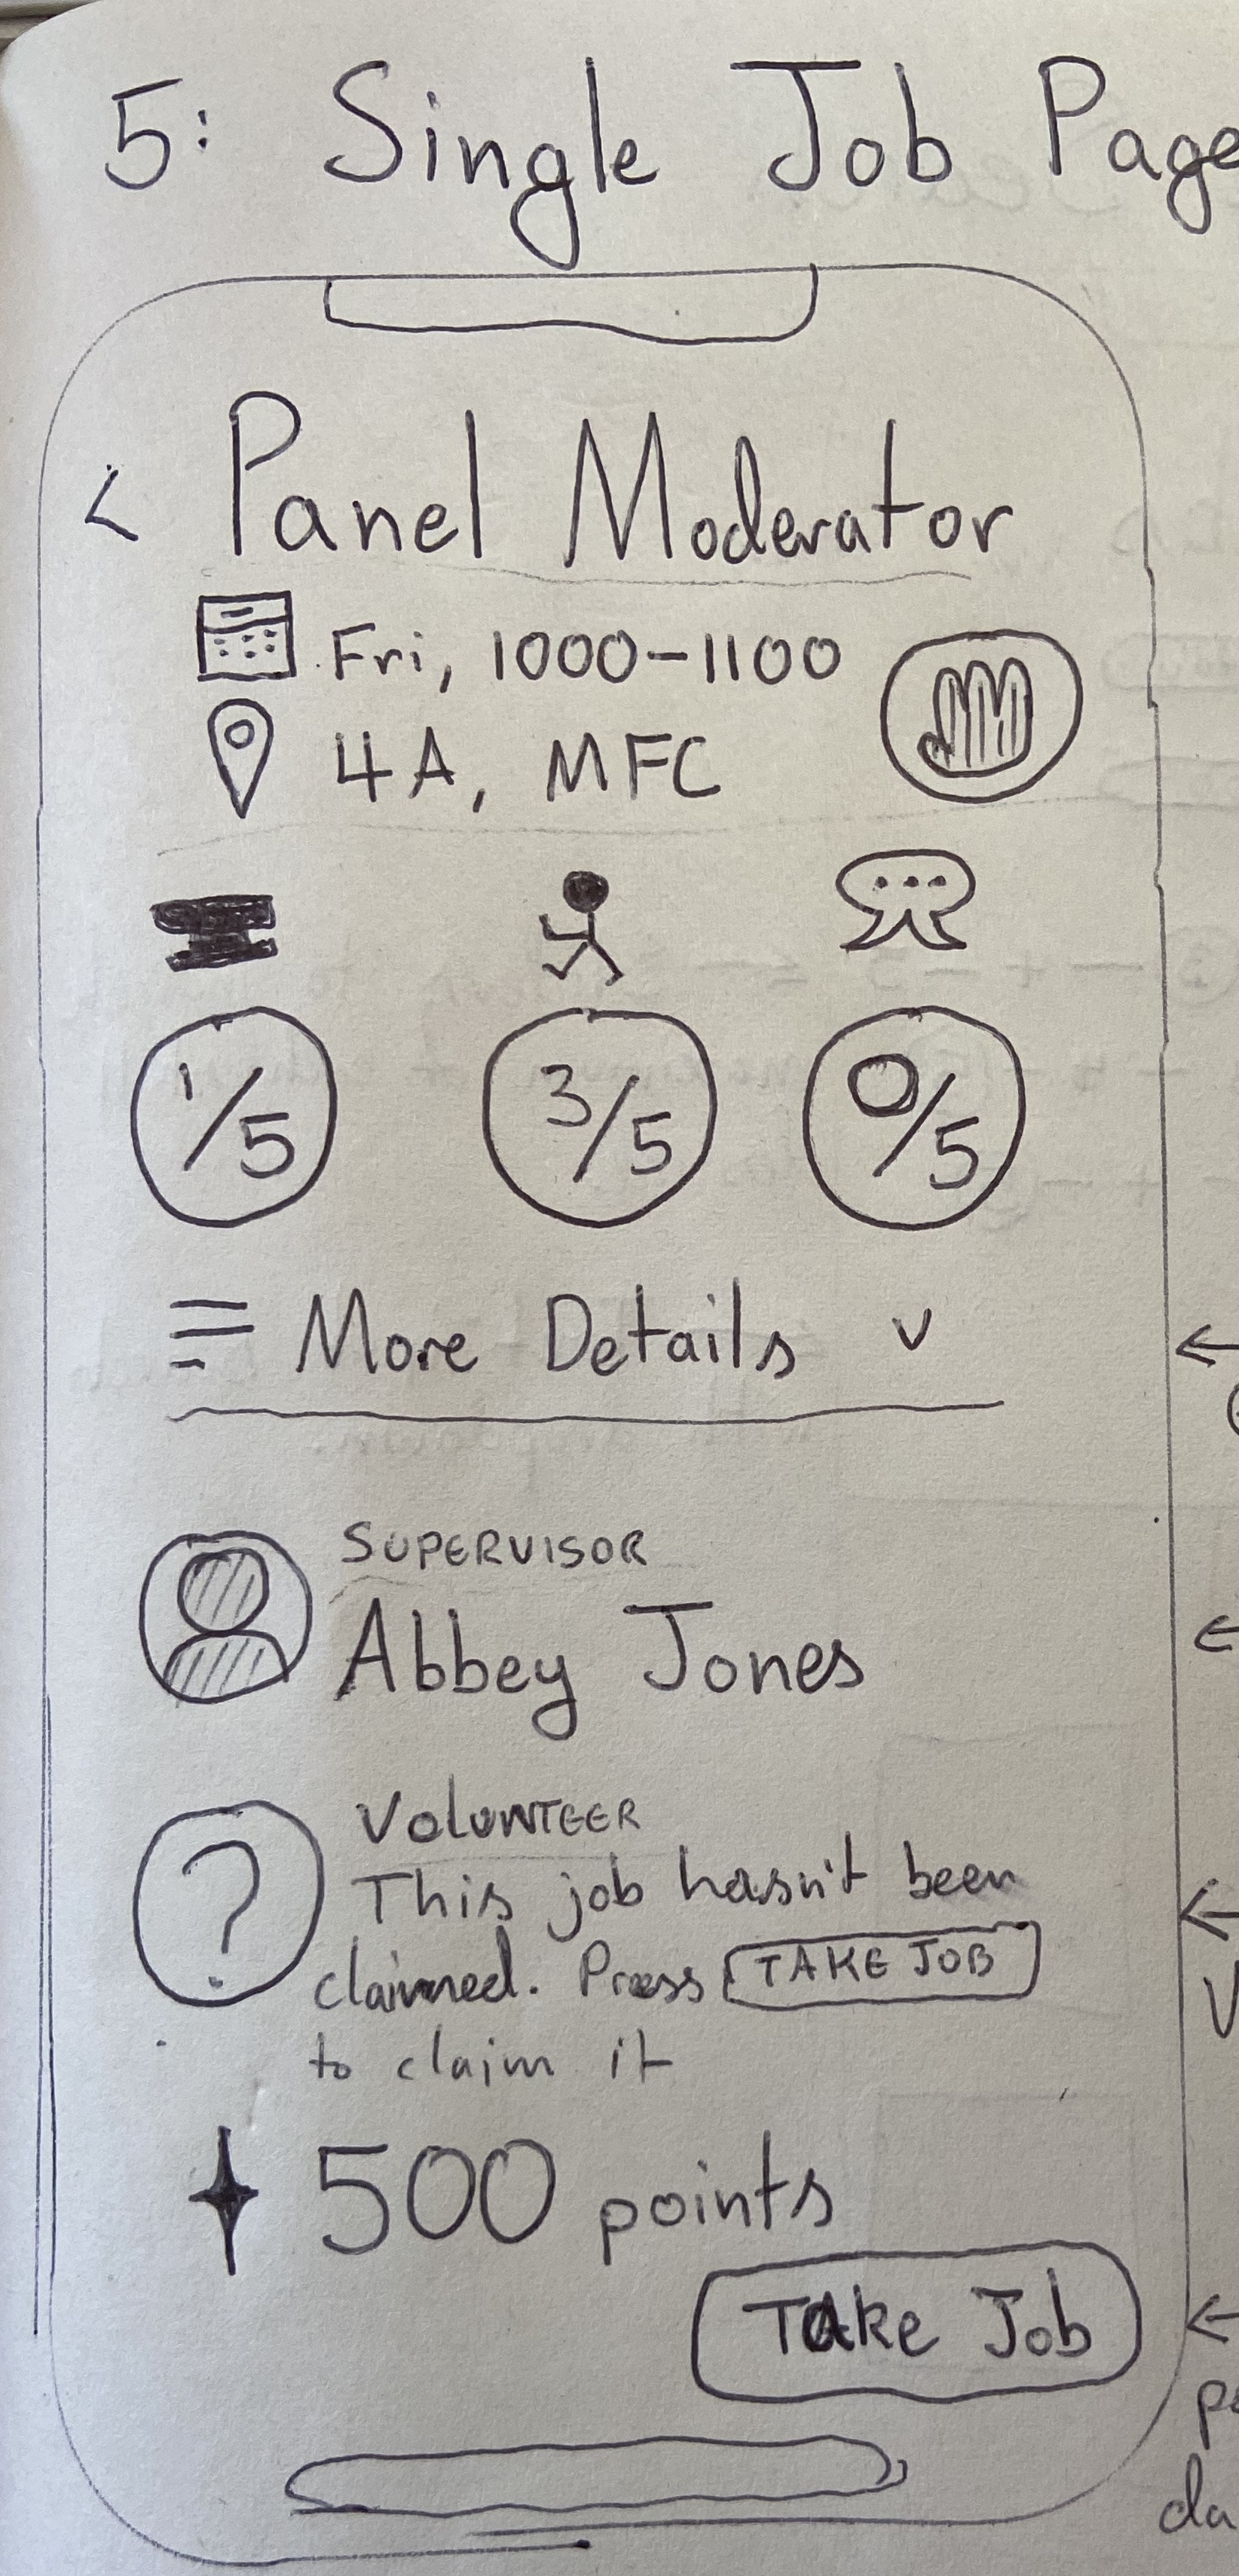 5: Single Job Page
< Panel Moderator
Fri, 1000-1100
4A, MFC
1/5 3/5 0/5
More Details v
SUPERVISOR
Abbey Jones
VOLUNTEER
This job hasn't been
claimed. Press TAKE JOB
to claim it
500 points
Take Job